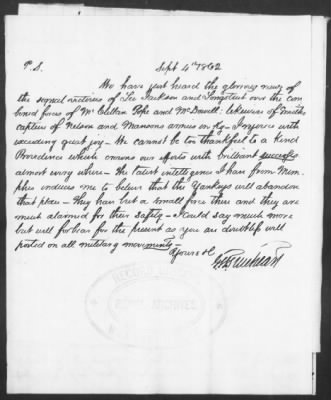 P.S. Sept 4th 1862
We have just heard the glorious news of
the signal victories of Lee Jackson and Longstreet over the com
bined force of McClellan Pope and McDowell: likewise of Smiths
capture of Nelson and Mansons armies in Ky - I rejoice with
exceeding great joy - We cannot be too thankful to a Kind
Providence which crowns our efforts with brilliant success
almost every where - The latest intelligence I have from Mem
phis induces me to believe that the Yankeys will abandon
that place - They have but a small force there and they are
much alarmed for their safety - I could say much more
but will forbear for the present as you are doubtless well
posted on all military movements -
Yours &c